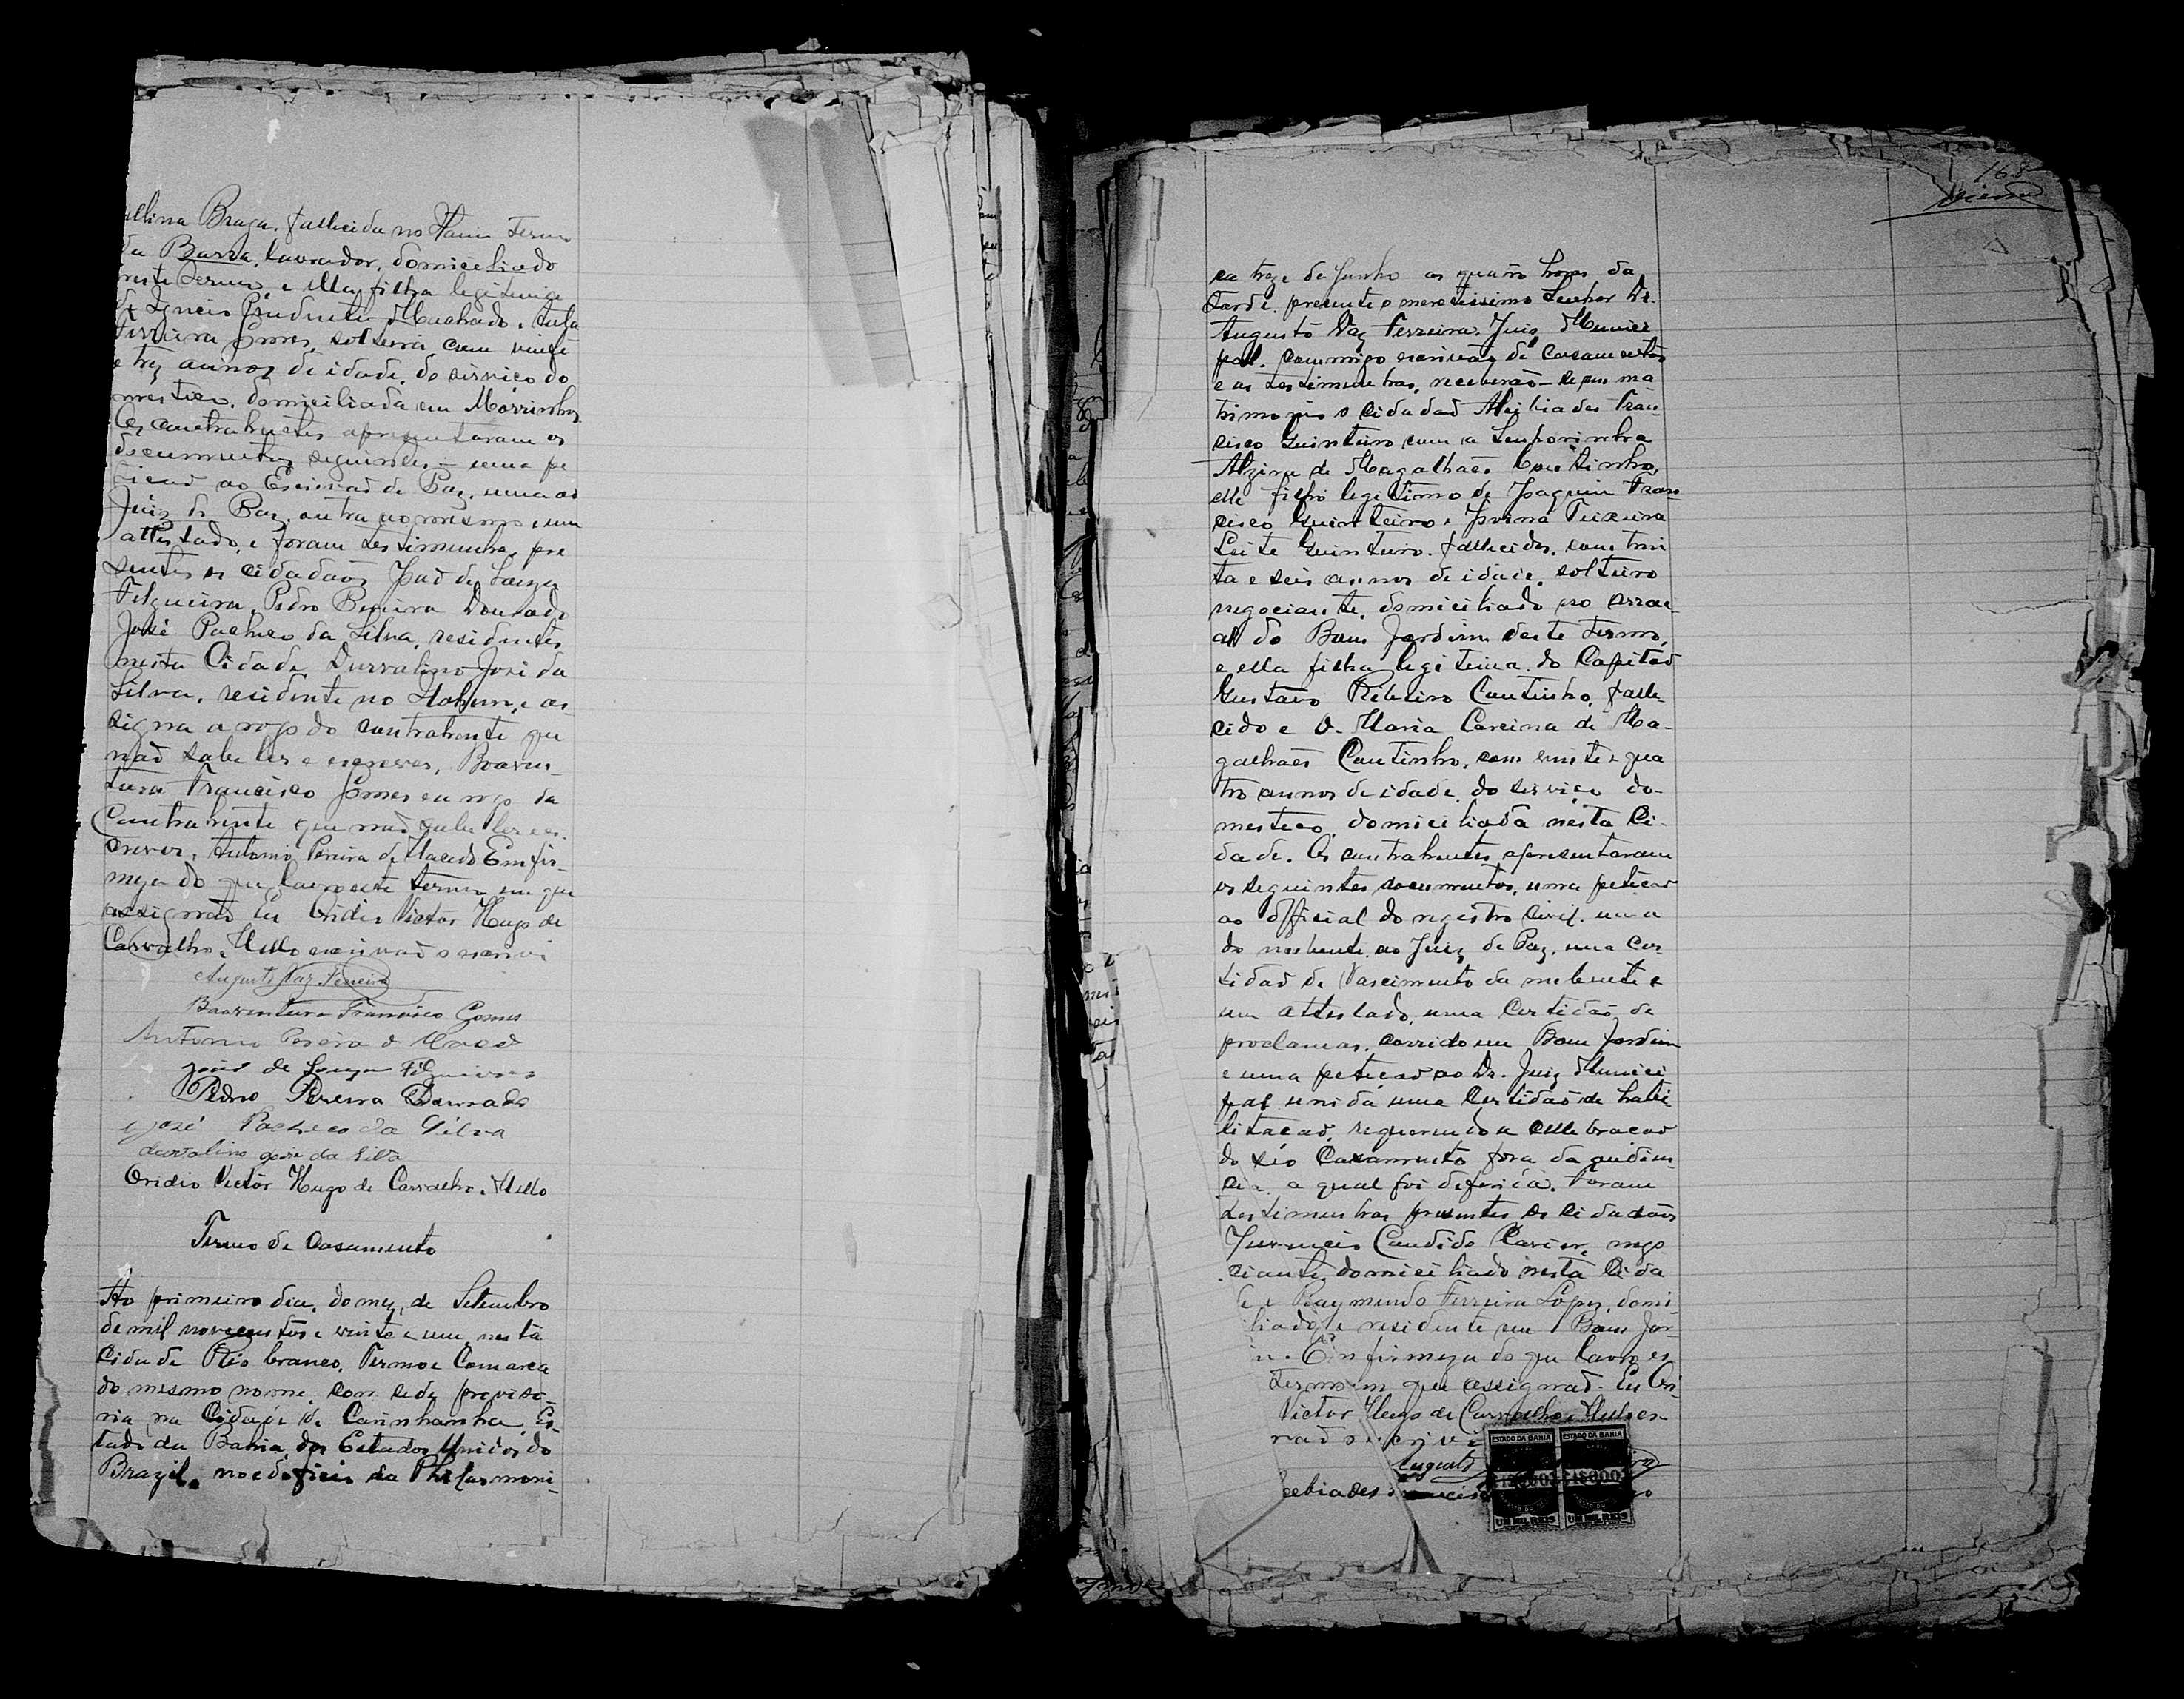 Braga, fallecida no
da Barra, lavrador, domiciliado
neste Termo, e ella filha legitima
de Igncio Prudente Machado e
Ferreira Gomes, solteira com vinte
e trez annos de idade, do serviço do
mestico, domiciliada em Morrinhos
Os contrahentes apresentaram os
documentos seguintes – uma pe
ticaõ ao Escrivaõ de Paz, uma ao
Juiz de Paz, outra ao mesmo e um
attestado, e foram testimunhas pre
sentes os cidadaõs Joaõ de Souza
Filgueira, Pedro Pereira Dourado
José Pacheco da Silva, residentes
nesta Cidade, Durvalino José da
Silva, residente no e as
signa a rogo do contrahente que
naõ sabe ler e escrever, Boaven-
tura Francisco Gomes e a rogo da
Contrahente que naõ sabe ler e es
crever, Antonio Pereira de Macedo Em fir-
meza do que lavro este termo em que
assignaõ Eu Ovidio Victor Hugo de
Carvalho e Mello escrivaõ o escrevi
Augusto Vaz Ferreira
Boaventura Francisco Gomes
Antonio Pereira d Maced
joaõ de Souza Filgueiras
Pedro Pereira Dourado
José Pacheco da Silva
durvalino jose da silva
Ovidio Victor Hugo de Carvalho e Mello
Termo de Casamento
Ao primeiro dia, do mez, de Setembro
de mil novecentos e vinte e um nesta
Cidade Rio branco, Termo e Comarca
do mesmo nome, com sede proviso-
ria na Cidade de Carinhanha, Es-
tado da Bahia, dos Estados Unidos do
Brazil, no edoficio da Philarmoni-
168
ca treze de Junho as quatro horas da
tarde, presente o meretissimo Senhor Dr.
Augusto Vaz Ferreira, Juiz Munici
pal, commigo escrivaõ de Casamentos
e as testimunhas, receberaõ-se em ma
trimonio o cidadaõ Alcibiades Fran-
cisco Guinteiro com a Senhorinha
Alzira de Magalhães Coutinho,
elle filho legitimo de Joaquim Fran
cisco Guinteiro e Teixeira
Leite Guinteiro, fallecidos, com trin
ta e seis annos de idade, solteiro
negociante, domiciliado no arrai-
al do Bom Jardim deste Termo,
e ella filha legitima do Capitaõ
Gustavo Ribeiro Coutinho, falle
cido e D. Maria Carcina de Ma-
galhães Coutinho, com vinte e qua
tro annos de idade, do serviço do-
mestico, domiciliada nesta Ci-
dade. Os contrahentes apresentaram
os seguintes documentos, uma peticaõ
ao official do registro Civil, uma
do nubente ao Juiz de Paz, uma cer
tidaõ de Nascimento da nubente e
um attestado, uma Certidaõ de
proclamas, corrido em Bom Jardim
e uma peticaõ ao Dr. Juiz Munici
pal unida uma Certidaõ de habi
litacaõ, requerendo a cellebracaõ
do seo Casamento fora da audien-
cia, a qual foi deferida. Foram
testimunhas presentes os cidadaõs
Candido Xavier, nego
ciante domiciliado nesta Cida
de e Raymundo Ferreira Lopes, domi
liado e residente em Bom Jar-
in. Em firmeza do que lavro es
termo em que assignaõ. Eu Ovi-
Victor Hugo de Carvalho e Mello es-
vaõ o escrivi
ESTADO DA BAHIA ESTADO DA BAHIA
Augusto
1$000 1$000
cebiades
UM MIL REIS UM MIL REIS